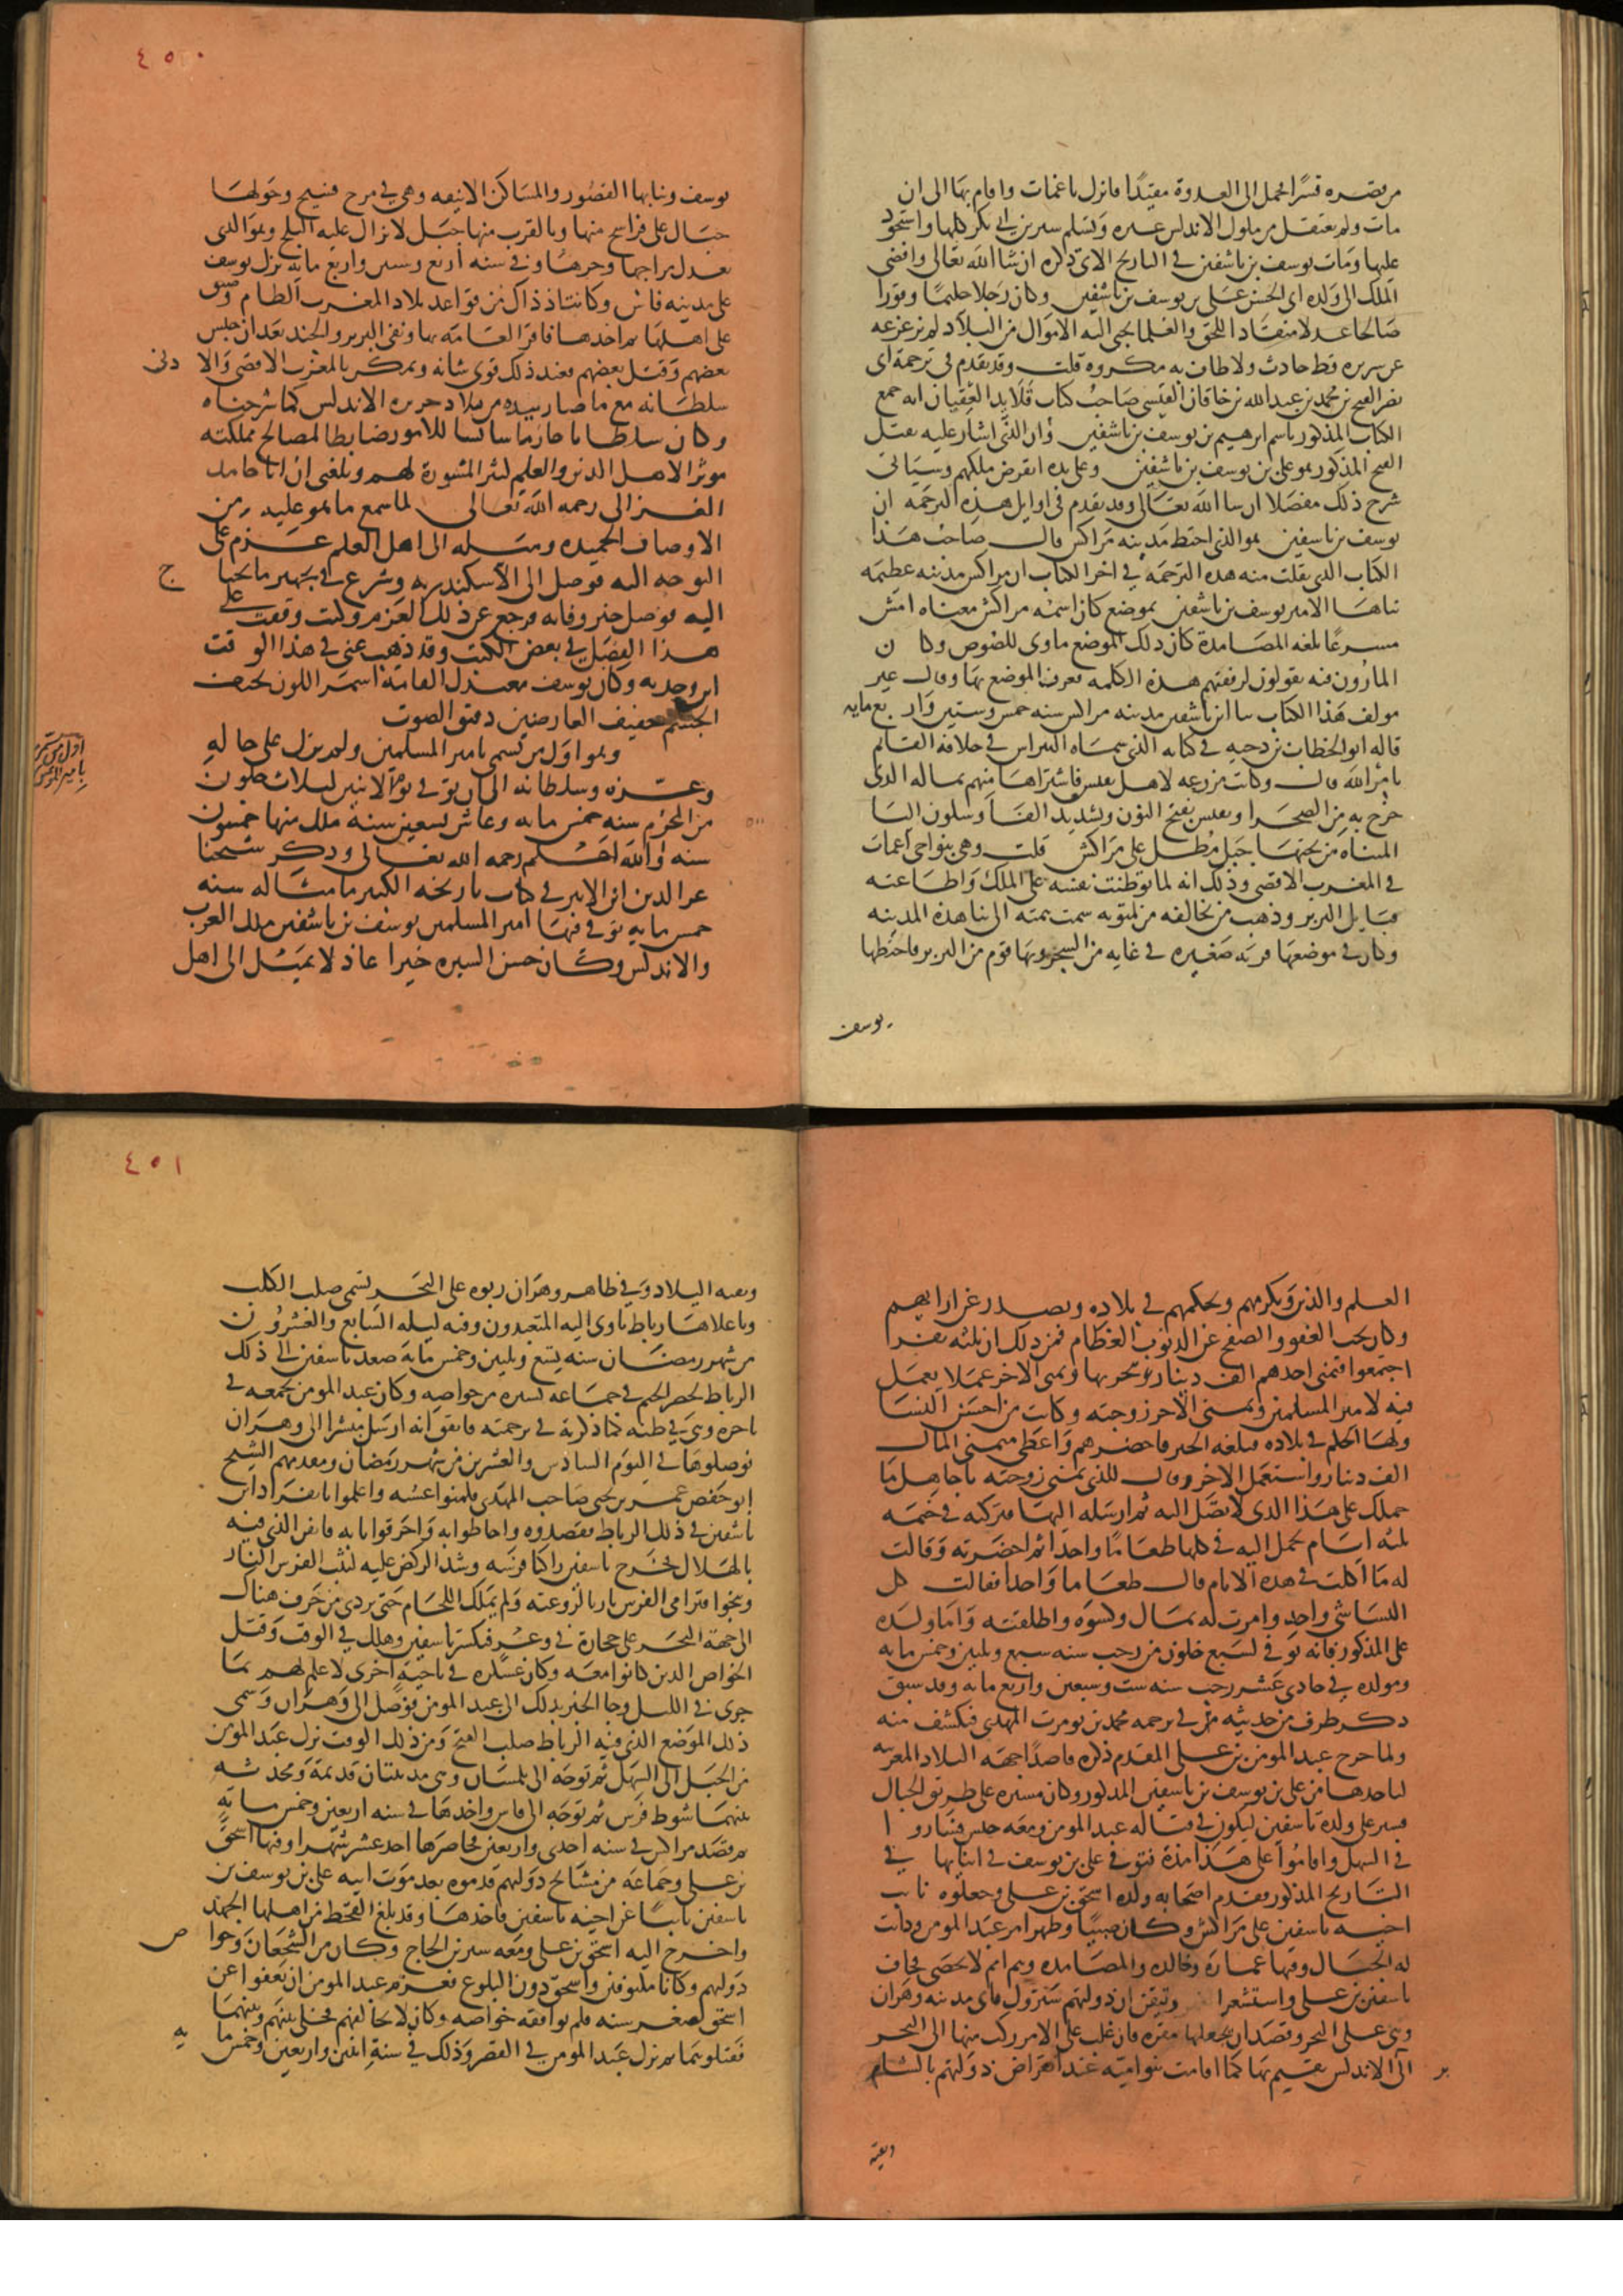 من قصره قسرا فحمل الى العدوة مقيدا فانزل باغمات واقام بها الى ان
مات ولم يعتقل من ملوك الاندلس غيره وتسلم سير بن ابي بكر كلها واستحوذ
عليها ومات يوسف بن تاشفين في التاريخ الاتي ذكره ان شا الله تعالى وافضى
الملك الى ولده ابي الحسن علي بن يوسف بن تاشفين وكان رجلا حليما وقورا
صالحا عدلا منقادا للحق والعلما تجبى اليه الاموال من البلاد لم يزعزعه
عن سريره قط حادث ولا طاف به مكروه قلت وقد تقدم في ترجمة ابي
نصر الفتح بن محمد بن عبد الله بن خاقان القيسي صاحب كتاب قلايد العقيان انه جمع
الكتاب المذكور باسم ابرهيم بن يوسف بن تاشفين وان الذي اشار عليه بقتل
الفتح المذكور هو علي بن يوسف بن تاشفين وعلى يده انقرض ملكهم وسياتي
شرح ذلك مفصلا ان شا الله تعالى وقد تقدم في اوايل هذه الترجمه ان
يوسف بن تاشفين هو الذي اختط مدينه مراكش قال صاحب هذا
الكتاب الذي نقلت منه هذه الترجمه في اخر الكتاب ان مراكش مدينه عظيمه
بناها الامير يوسف بن تاشفين بموضع كان اسمه مراكش معناه امش
مسرعا بلغه المصامدة كان ذلك الموضع ماوى للصوص وكا ن
المارون فيه يقولون لرفقتهم هذه الكلمه فعرف الموضع بها وقال غير
مولف هذا الكتاب بنا ابن تاشفين مدينه مراكش سنه خمس وستين وار بع مايه
قاله ابو الخطاب بن دحيه في كتابه الذي سماه النبراس في خلافه القايم
بامر الله قال وكانت مزرعه لاهل نفيس فاشتراها منهم بماله الذي
خرج به من الصحرا ونفيس بفتح النون وتشديد الفا وسكون اليا
المثناه من تحتها جبل مطل على مراكش قلت وهي بنواحي اغمات
في المغرب الاقصى وذلك انه لما توطنت نفسه على الملك واطاعته
قبايل البربر وذهب من يخالفه من لمتونه سمت همته الى بنا هذه المدينه
وكان في موضعها قريه صغيره في غابه من الشجر وبها قوم من البربر فاختطها
يوسف
٤٥٠
يوسف وبنا بها القصور والمساكن الانيقه وهي في مرج فسيح وحولها
جبال على فراسخ منها وبالقرب منها جبل لا تزال عليه الثلج وهو الذي
يعدل مزاجها وحرها وفي سنه اربع وستين واربع مايه نزل يوسف
على مدينه فاس وكانت اذ ذاك من قواعد بلاد المغرب العظام وضيق
على اهلها ثم اخذها فاقر العامه بها ونفى البربر والجند بعد ان حبس
بعضهم وقتل بعضهم فعند ذلك قوي شانه وتمكن بالمغرب الاقصى والا دنى
سلطانه مع ما صار بيده من بلاد جزيره الاندلس كما شرحناه
وكان سلطانا حازما سايسا للامور ضابطا لمصالح مملكته
موثرا لاهل الدين والعلم كثير المشورة لهم وبلغني ان ابا حامد
الغزالي رحمه الله تعالى لما سمع ما هو عليه من
الاوصاف الحميده وميله الى اهل العلم عزم على
التوجه اليه فوصل الى الاسكندريه وشرع في تجهيز ما يحتا ج
اليه فوصل خبر وفاته فرجع عن ذلك العزم وكنت وقفت على
هذا الفصل في بعض الكتب وقد ذهب عني في هذا الوقت
اين وجدته وكان يوسف معتدل القامة اسمر اللون نحيف
الجسم خفيف العارضين دقيق الصوت
وهو اول من تسمى بامير المسلمين ولم يزل على حاله
وعزه وسلطانه الى ان توفي يوم الاثنين لثلاث خلون
من المحرم سنه خمس مايه وعاش تسعين سنة ملك منها خمسون
سنه والله اعلم رحمه الله تعالى وذكر شيخنا
عز الدين ابن الاثير في كتاب تاريخه الكبير ما مثاله سنه
خمس مايه توفي فيها امير المسلمين يوسف بن تاشفين ملك الغرب
والاندلس وكان حسن السيره خيرا عادلا يميل الى اهل
٥٠٠
اول من تسمى
بامير المومنين
العلم والدين ويكرمهم ويحكمهم في بلاده ويصدر عن ارايهم
وكان يحب العفو والصفح عن الذنوب العظام فمن ذلك ان ثلثه نفر ا
اجتمعوا فتمنى احدهم الف دينار يتجر بها وتمنى الاخر عملا يعمل
فيه لامير المسلمين وتمنى الاخر زوجته وكانت من احسن النسا
ولها الحكم في بلاده فبلغه الخبر فاحضرهم واعطى متمنى المال
الف دينار واستعمل الاخر وقال للذي تمنى زوجته يا جاهل ما
حملك على هذا الذي لا تصل اليه ثم ارسله اليها فتركته في خيمه
ثلثه ايام تحمل اليه في كلها طعاما واحدا ثم احضرته وقالت
له ما اكلت في هذه الايام قال طعاما واحدا فقالت كل
النسا شي واحد وامرت له بمال وكسوه واطلقته واما ولده
علي المذكور فانه توفي لسبع خلون من رجب سنه سبع وثلثين وخمس مايه
ومولده في حادي عشر رجب سنه ست وسبعين واربع مايه وقد سبق
ذكر طرف من حديثه في ترجمه محمد بن تومرت المهدي فيكشف منه
ولما خرج عبد المومن بن علي المقدم ذكره قاصدا جهه البلاد المغربيه
لياخذها من علي بن يوسف بن تاشفين المذكور وكان مسيره على طريق الجبال
فسير علي ولده تاشفين ليكون في قتاله عبد المومن ومعه جيش فساروا
في السهل واقاموا على هذا مدة فتوفي علي بن يوسف في اثنايها في
التاريخ المذكور فقدم اصحابه ولده اسحق بن علي وجعلوه نايب
اخيه تاشفين على مراكش وكان صبيا وظهر امر عبد المومن ودانت
له الجبال وفيها غماره وتادله والمصامده وهم امم لا تحصى فخاف
تاشفين بن علي واستشعر ا وتيقن ان دولتهم ستزول فاتى مدينه وهران
وهي على البحر وقصد ان يجعلها مقره فان غلب على الامر ركب منها الى البحر
الى الاندلس يقيم بها كما اقامت بنو اميه عند انقراض دولتهم بالشام
وبقيه
٤٥١
وبقيه البلاد وفي ظاهر وهران ربوه على البحر تسمى صلب الكلب
وباعلاها رباط ياوي اليه المتعبدون وفيه ليله السابع والعشرون
من شهر رمضان سنه تسع وثلثين وخمس مايه صعد تاشفين الى ذلك
الرباط لحضر الختم في جماعه يسيره من خواصه وكان عبد المومن بجمعه في
تاجره وهي وطنه كما ذكرته في ترجمته فاتفق انه ارسل منسرا الى وهران
فوصلوها في اليوم السادس والعشرين من شهر رمضان ومقدمهم الشيخ
ابو حفص عمر بن يحيى صاحب المهدي فكمنوا عشيه واعلموا بانفراد
تاشفين في ذلك الرباط فقصدوه واحاطوا به واحرقوا بابه فايقن الذي فيه
بالهلاك فخرج تاشفين راكبا فرسه وشد الركض عليه ليثب الفرس النار
وينجوا فترامى الفرس نازيا لروعته ولم يملك اللجام حتى تردى من جرف هناك
الى جهة البحر على حجارة في وعر فتكسر تاشفين وهلك في الوقت وقتل
الخواص الذين كانوا معه وكان عسكره في ناحية اخرى لا علم لهم بما
جرى في الليل وجا الخبر بذلك الى عبد المومن فوصل الى وهران وسمى
ذلك الموضع الذي فيه الرباط صلب الفتح ومن ذلك الوقت نزل عبد المومن
من الجبل الى السهل ثم توجه الى تلمسان وهي مدينتان قديمة ومحدثه
بينهما شوط فرس ثم توجه الى فاس واخذها في سنه اربعين وخمس مايه
ثم قصد مراكش في سنه احدى واربعين فحاصرها احد عشر شهرا وفيها اسحق
بن علي وجماعه من مشايخ دولتهم قدموه بعد موت ابيه علي بن يوسف بن
تاشفين نايبا عن اخيه تاشفين فاخذها وقد بلغ القحط من اهلها الجهد
واخرج اليه اسحق بن علي ومعه سير بن الحاج وكان من الشجعان وخوا ص
دولتهم وكانا مكتوفين واسحق دون البلوغ فعزم عبد المومن ان يعفوا عن
اسحق لصغر سنه فلم يوافقه خواصه وكان لا يخالفهم فخلى بينهم وبينهما
فقتلوهما ثم نزل عبد المومن في القصر وذلك في سنة اثنين واربعين وخمس ما يه